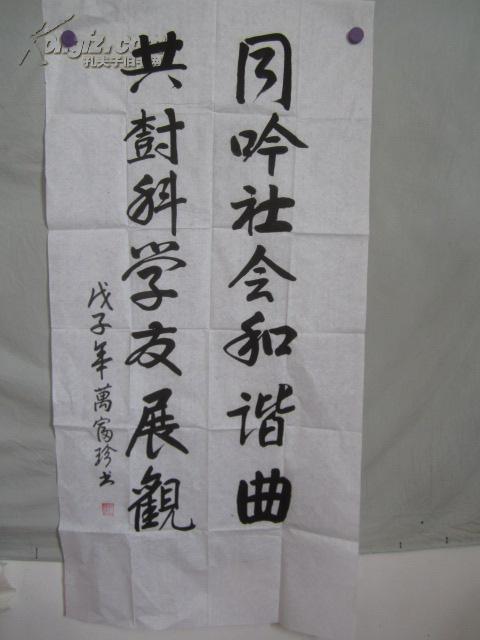 同吟社会和谐曲
共樹科学发展觀
戊子年萬富珍书
Kongfz.com
孔夫子旧书网